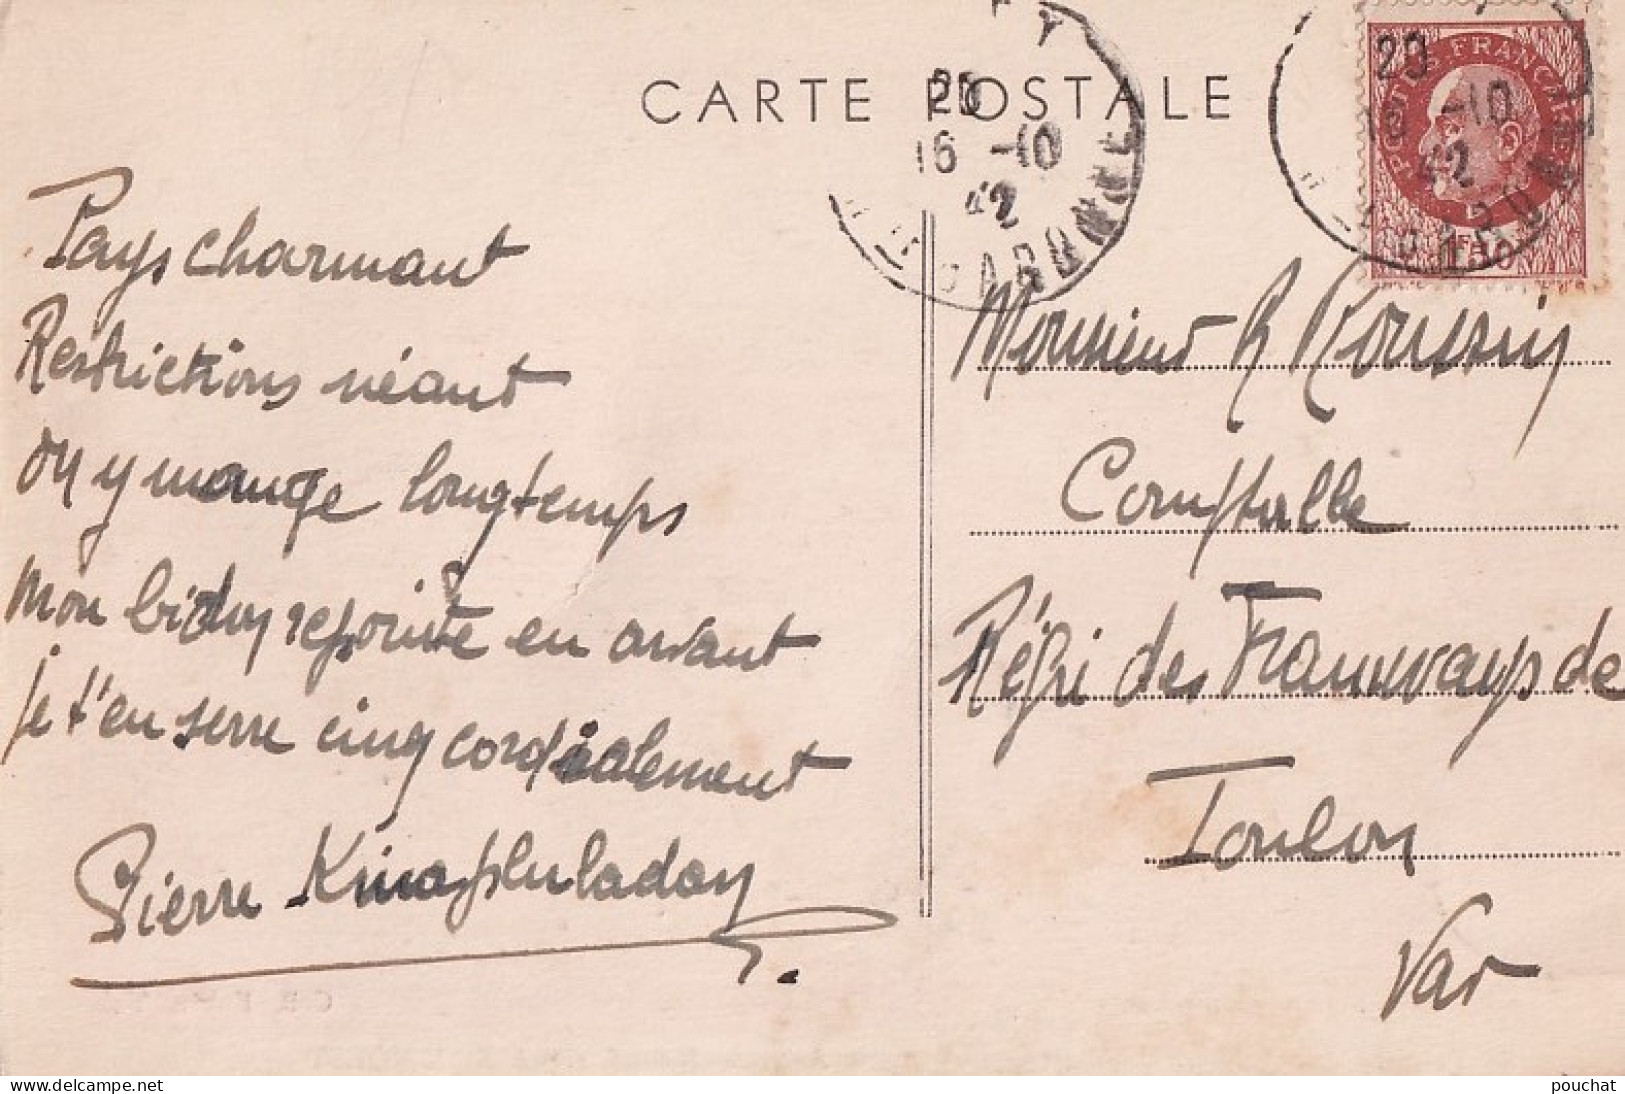 CARTE POSTALE
20
16 -10
42
GARONNE
20
16 -10
42
POSTES FRANÇAISES
1F50
Pays charmant
Restrictions néant
on y mange longtemps
mon bidon repointe en avant
je t'en serre cinq cordialement
Pierre
Monsieur R Roussin
Comptable
Régi des Tramways de
Toulon
Var
pouchat